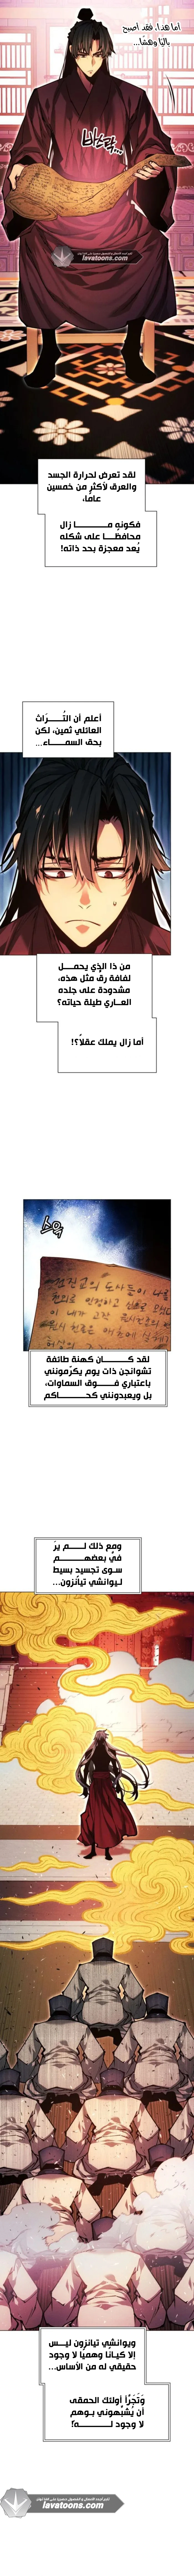 أما هذا، فقد أصبح
باليًا وهشًا...
lavatoons.com
لقد تعرض لحرارة الجسد
والعرق لأكثر من خمسين
عامًا،
فكونه مـــا زال
محافظًـا على شكله
يُعد معجزة بحد ذاته!
أعلم أن التُـــرَاث
العائلي ثمين، لكن
بحق السمـــاء...
من ذا الذي يحمـــل
لفافة رق مثل هذه،
مشدودة على جلده
العــاري طيلة حياته؟
أما زال يملك عقلاً؟!
لقد كـــان كهنة طائفة
تشوانجن ذات يوم يكرّمونني
باعتباري فـــوق السماوات،
بل ويعبدونني كحـــاكم
ومع ذلك لـــم يرَ
في بعضهـــم
سـوى تجسيد بسيط
لـيوانشي تيانزون...
ويوانشي تيانزون ليـــس
إلا كيـانًا وهميًا لا وجود
حقيقي له من الأساس...
وَتَجَرَّأ أولئك الحمقى
أن يُشبّهوني بـوهم
لا وجود لـــه؟!
lavatoons.com